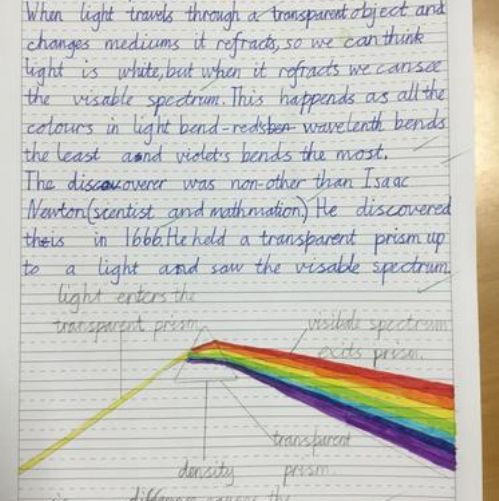 When light travels through a transparent object and
changes mediums it refracts, so we can think
light is white, but when it refracts we can see
the visable spectrum. This happends as all the
colours in light bend - red's wavelenth bends
the least and violet's bends the most.
The discoverer was non-other than Isaac
Newton (scentist and mathmation) He discovered
this in 1666. He held a transparent prism up
to a light and saw the visable spectrum
light enters the
transparent prism
visibale spectrum
exits prism.
transparent
prism.
density
difference causes the